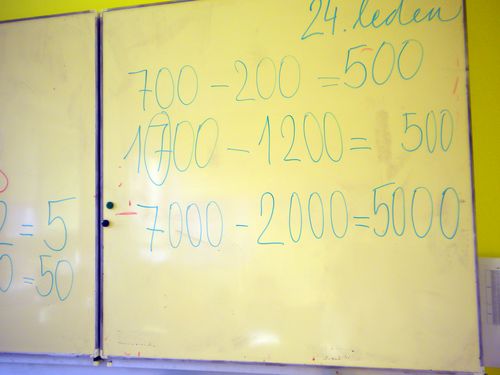 24. leden
700 - 200 = 500
1700 - 1200 = 500
7000 - 2000 = 5000
2 = 5
0 = 50